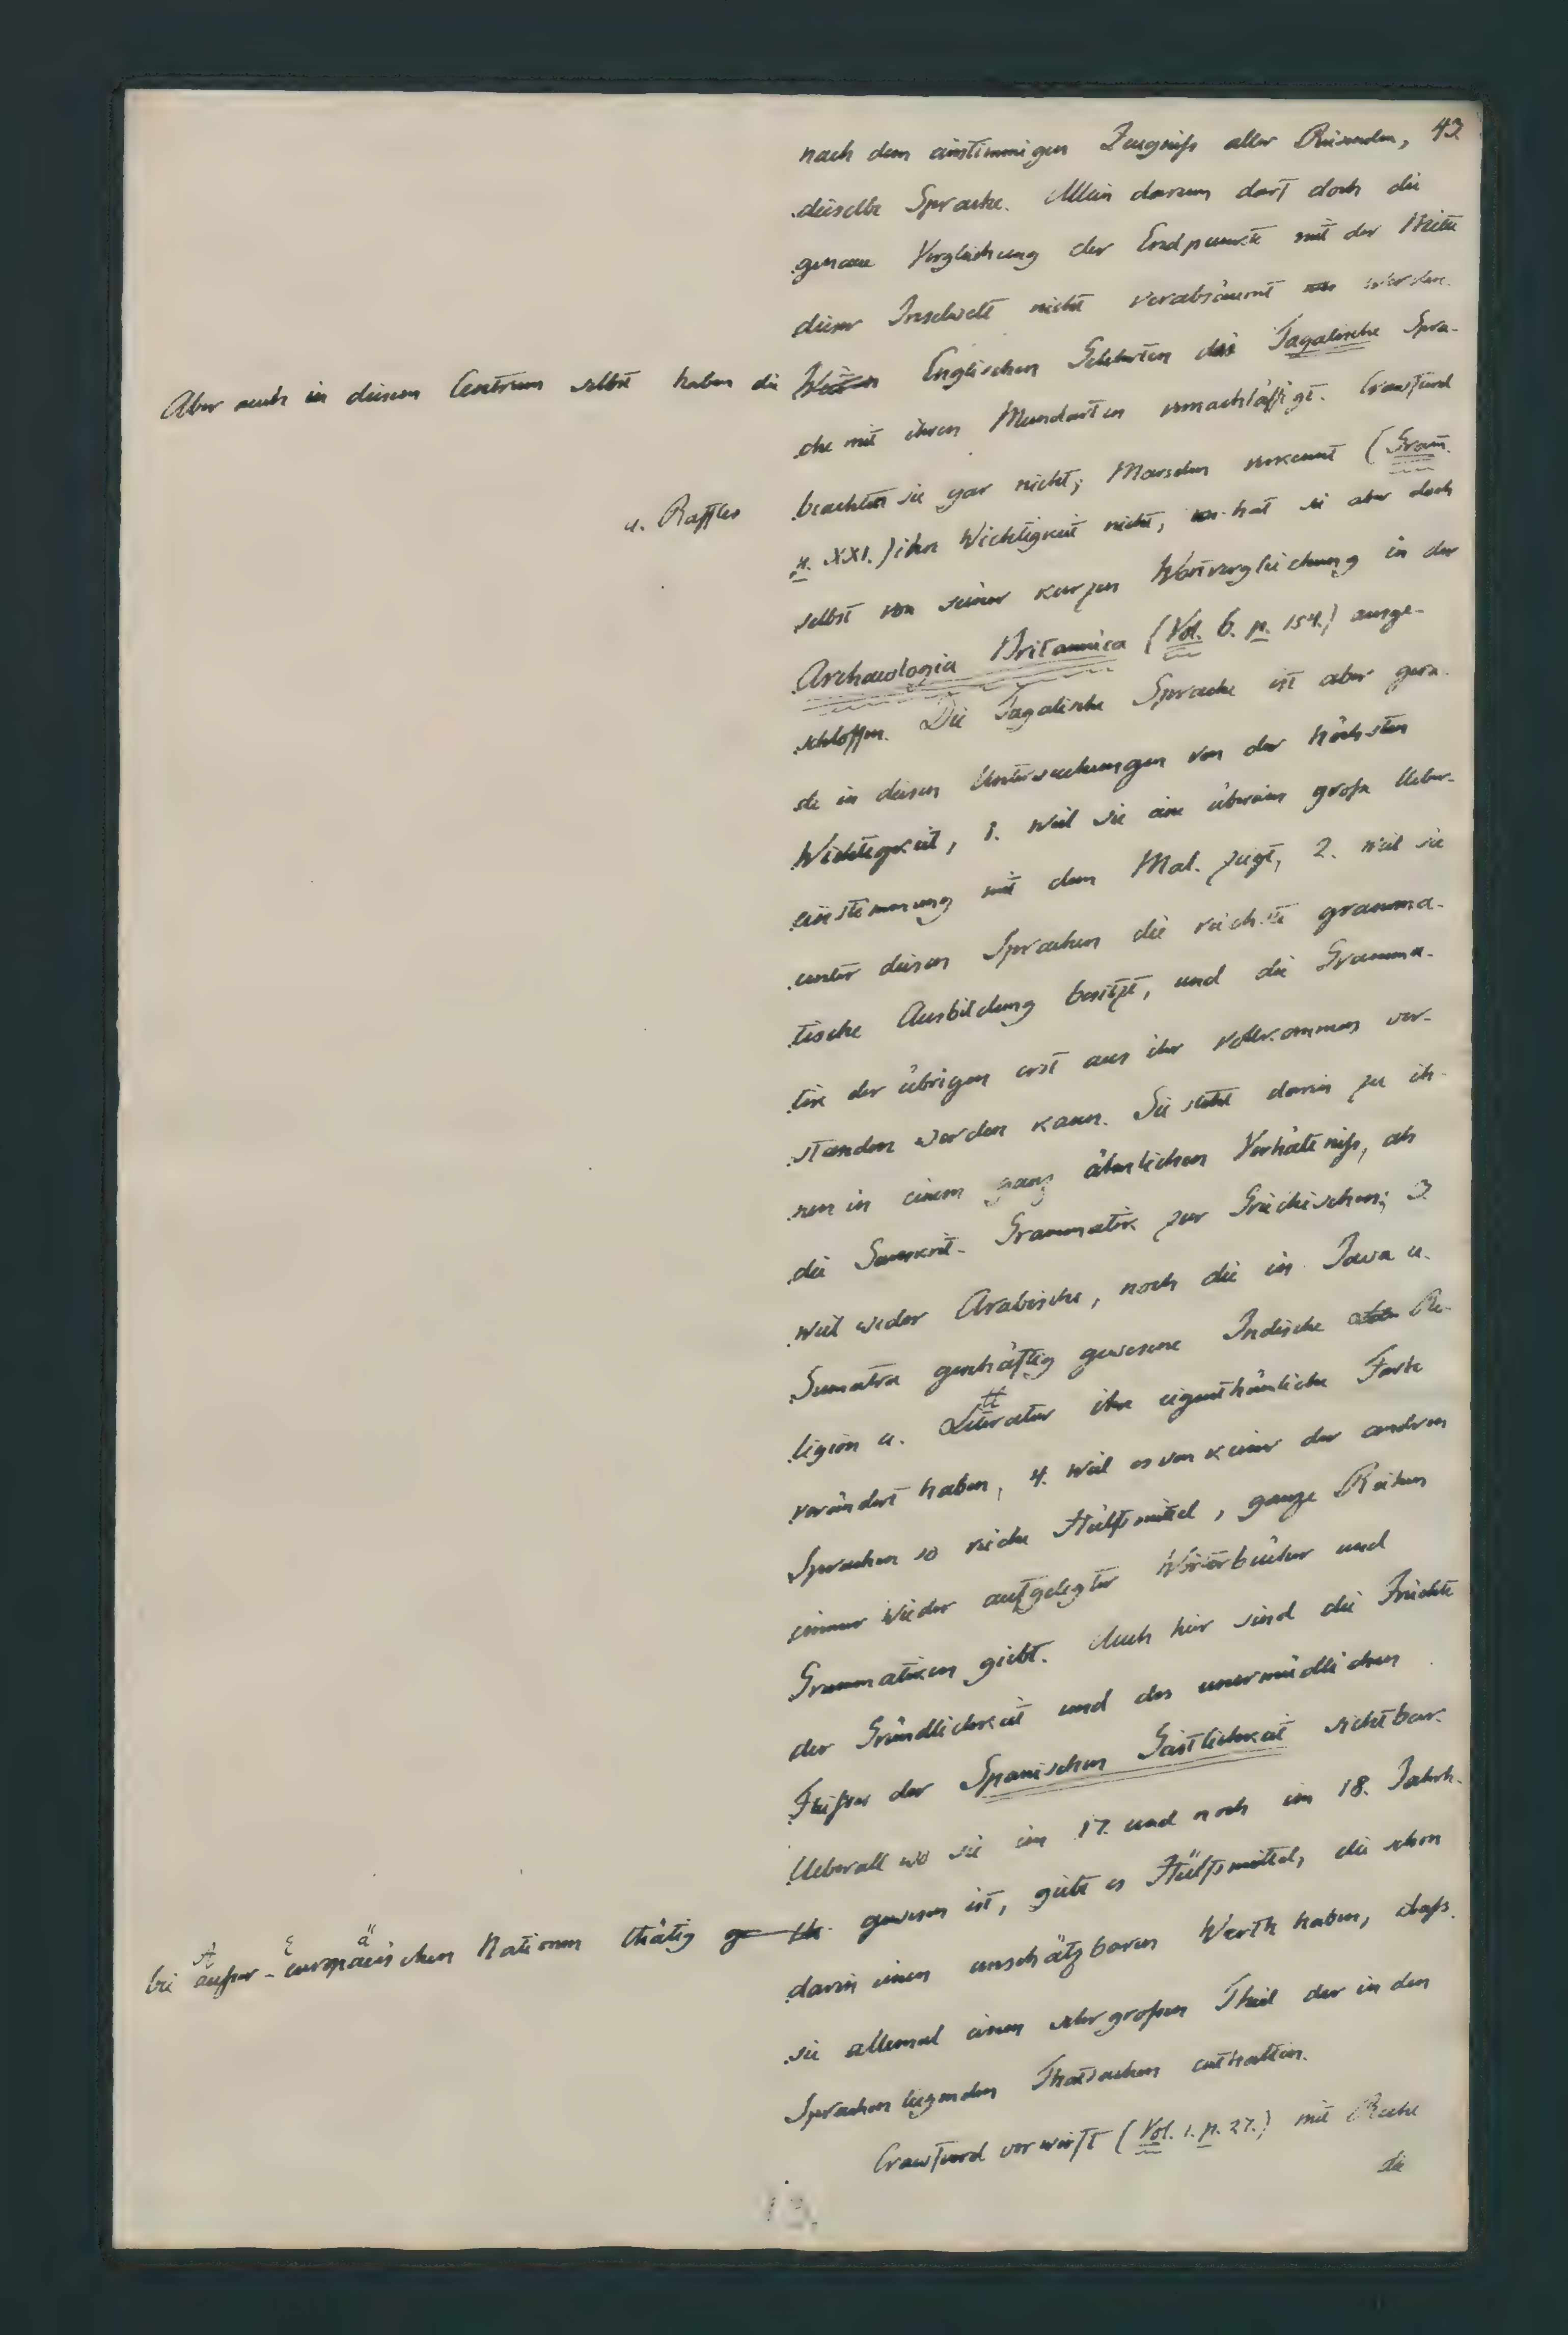 43
nach dem einstimmigen Zeugniß aller Reisenden,
dieselbe Sprache. Allein darum darf doch die
genaue Vergleichung der Endpunkte mit der Mitte
dieser Inselwelt nicht verabsäumt werden.
Aber auch in diesem Centrum selbst haben die Englischen Gelehrten die Tagalische Spra-
che mit ihren Mundarten vernachläßigt. Crawfurd
u. Raffles beachten sie gar nicht; Marsden verkennt (Gram.
p. XXI.) ihre Wichtigkeit nicht, hat sie aber doch
selbst von seiner kurzen Wortvergleichung in der
Archaeologia Britannica (Vol. 6. p. 154.) ausge-
schloßen. Die Tagalische Sprache ist aber gera-
de in diesen Untersuchungen von der höchsten
Wichtigkeit, 1. weil sie eine überaus große Ueber-
einstimmung mit dem Mal. zeigt, 2. weil sie
unter diesen Sprachen die reichste gramma-
tische Ausbildung besitzt, und die Gramma-
tik der übrigen erst aus ihr vollkommen ver-
standen werden kann. Sie steht darin zu ih-
nen in einem ganz ähnlichen Verhältniß, als
die Sanskrit-Grammatik zur Griechischen; 3.
weil weder Arabische, noch die in Java u.
Sumatra geschäftig gewesene Indische Re-
ligion u. Litteratur ihre eigenthümliche Farbe
verändert haben, 4. weil es von keiner der andren
Sprachen so reiche Hülfsmittel, ganze Reihen
immer wieder aufgelegter Wörterbücher und
Grammatiken giebt. Auch hier sind die Früchte
der Gründlichkeit und des unermüdlichen
Fleißes der Spanischen Geistlichkeit sichtbar.
Ueberall wo sie im 17. und noch im 18. Jahrh.
bei Außer-Europäischen Nationen thätig gewesen ist, giebt es Hülfsmittel, die schon
darin einen unschätzbaren Werth haben, daß
sie allemal einen sehr großen Theil der in den
Sprachen liegenden Thatsachen enthalten.
Crawfurd verwirft (Vol. 1. p. 27.) mit Recht
die